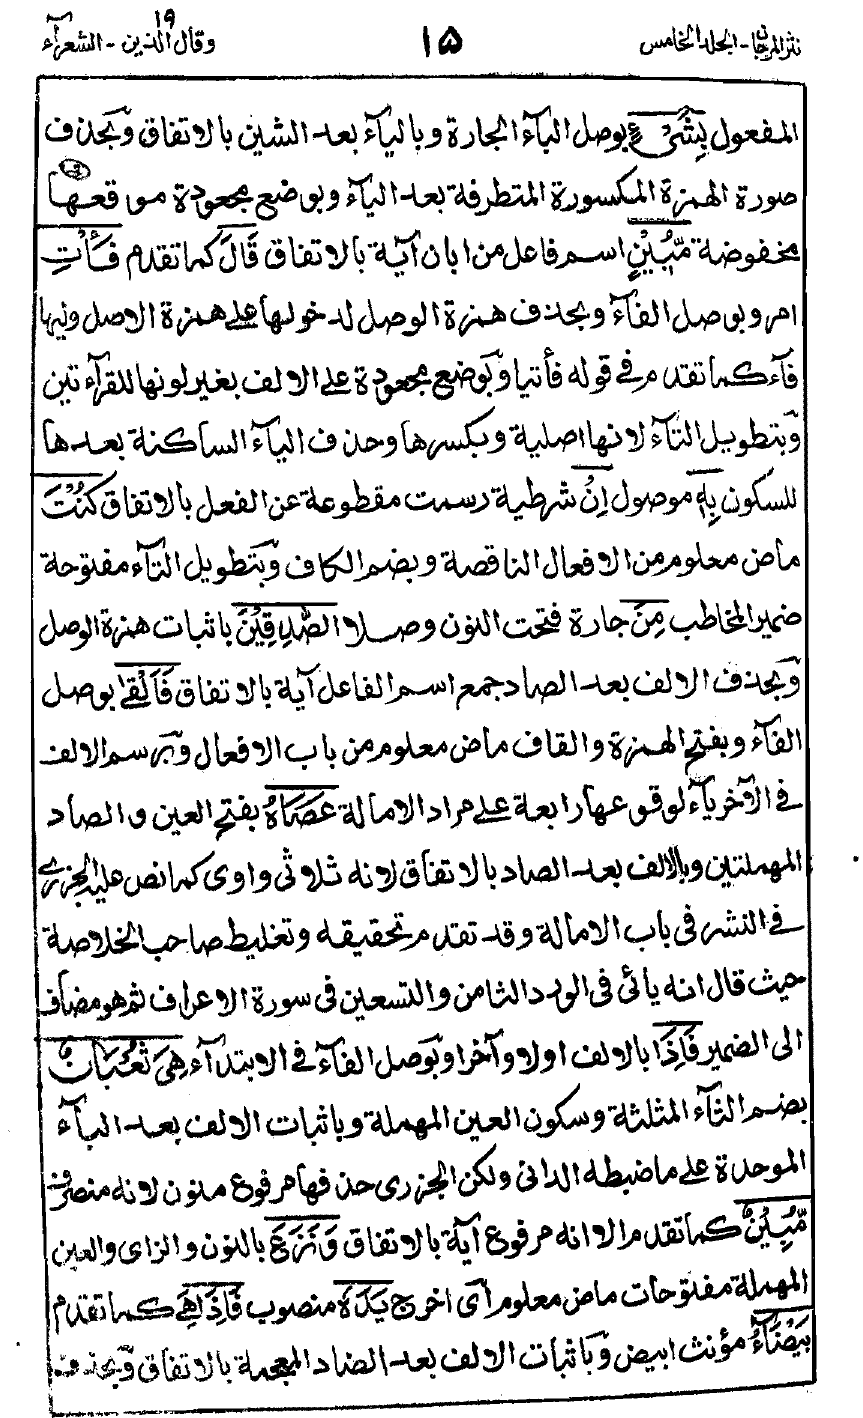 نثر المرجان - الجلد الخامس ١٥ وقال الذين ١٩ - الشعرآء
المفعول بِشَىْءٍ بوصل البآء الجارة وبالياء بعد الشين بالاتفاق وبحذف
صورة الهمزة المكسورة المتطرفة بعد اليآء وبوضع مجعودة موقعها
مخفوضة مُّبِيْنٍ اسم فاعل من ابان آية بالاتفاق قَالَ كما تقدم فَأْتِ
امر وبوصل الفآء وبحذف همزة الوصل لدخولها على همزة الاصل وليها
فآء كما تقدم في قوله فأتيا وبوضع مجعودة على الالف بغير لونها للقرآءتين
وبتطويل التآء لانها اصلية وبكسرها وحذف اليآء الساكنة بعدها
للسكون بِهٖ موصول اِنْ شرطية رسمت مقطوعة عن الفعل بالاتفاق كُنْتَ
ماض معلوم من الافعال الناقصة وبضم الكاف وبتطويل التآء مفتوحة
ضمير المخاطب مِنَ جارة فتحت النون وصلا الصّٰدِقِيْنَ باثبات همزة الوصل
وبحذف الالف بعد الصاد جمع اسم الفاعل آية بالاتفاق فَاَلْقٰى بوصل
الفآء وبفتح الهمزة والقاف ماض معلوم من باب الافعال وبرسم الالف
في الآخر يآء لوقوعها رابعة على مراد الامالة عَصَاهُ بفتح العين والصاد
المهملتين وبالالف بعد الصاد بالاتفاق لانه ثلاثي واوى كما نص عليه الجزري
في النشر في باب الامالة وقد تقدم تحقيقه وتغليط صاحب الخلاصة
حيث قال انه يائي في الورد الثامن والتسعين في سورة الاعراف ثم هو مضاف
الى الضمير فَاِذَا بالالف اولا وآخرا وبوصل الفآء في الابتدآء هِىَ ثُعْبَانٌ
بضم الثآء المثلثة وسكون العين المهملة وباثبات الالف بعد البآء
الموحدة على ما ضبطه الداني ولكن الجزرى حذفها مرفوع منون لانه منصرف
مُّبِيْنٌ كما تقدم الا انه مرفوع آية بالاتفاق وَنَزَعَ بالنون والزاى والعين
المهملة مفتوحات ماض معلوم اى اخرج يَدَهٗ منصوب فَاِذَا هِىَ كما تقدم
بَيْضَآءُ مؤنث ابيض وباثبات الالف بعد الضاد المعجمة بالاتفاق وبحذف